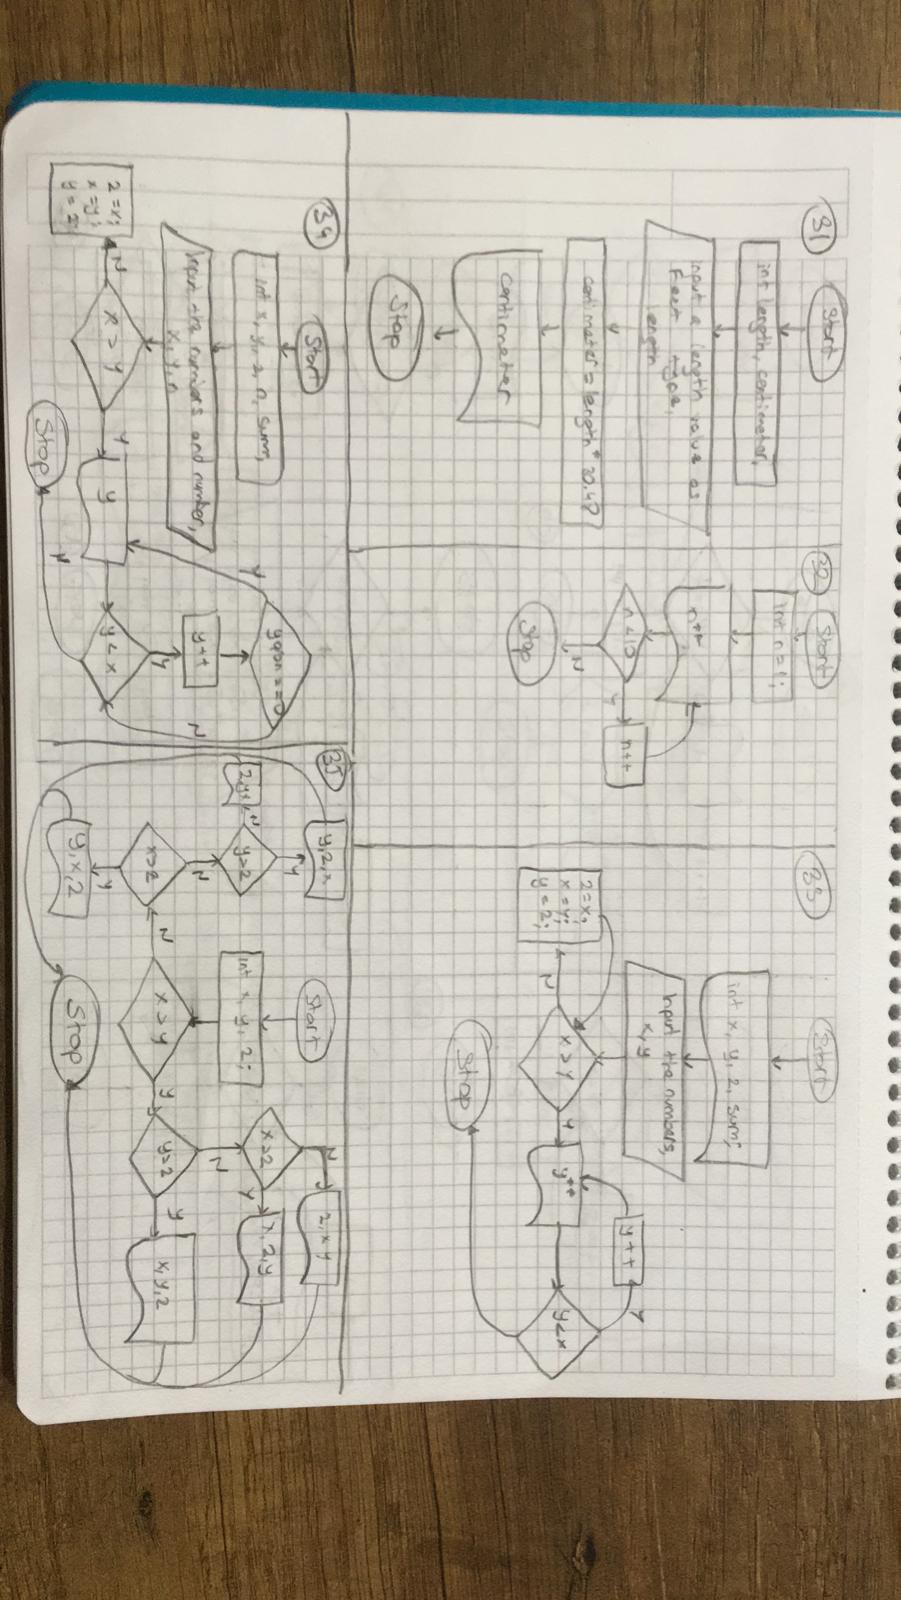 31
Start
int length, centimeter,
input a length value as
Feet type,
length
centimeter = length * 30.48
centimeter
Stop
32
Start
int n = 1;
n++
n<10
N
Y
n++
Stop
33
Start
int x, y, z, sum;
Input the numbers,
x, y
x > y
N
z = x;
x = y;
y = z;
Y
y++
y<x
Y
y++
Stop
34
Start
int x, y, z, n, sum,
Input the numbers and number,
x, y, n
x > y
N
z = x;
x = y;
y = z;
Y
y
y < x
Y
y++
y%n==0
Y
N
N
Stop
35
Start
int x, y, z;
x > y
Y
y>z
Y
x, y, z
N
x>z
Y
x, z, y
N
z, x, y
N
x>z
Y
y, x, z
N
y>z
Y
y, z, x
N
Stop